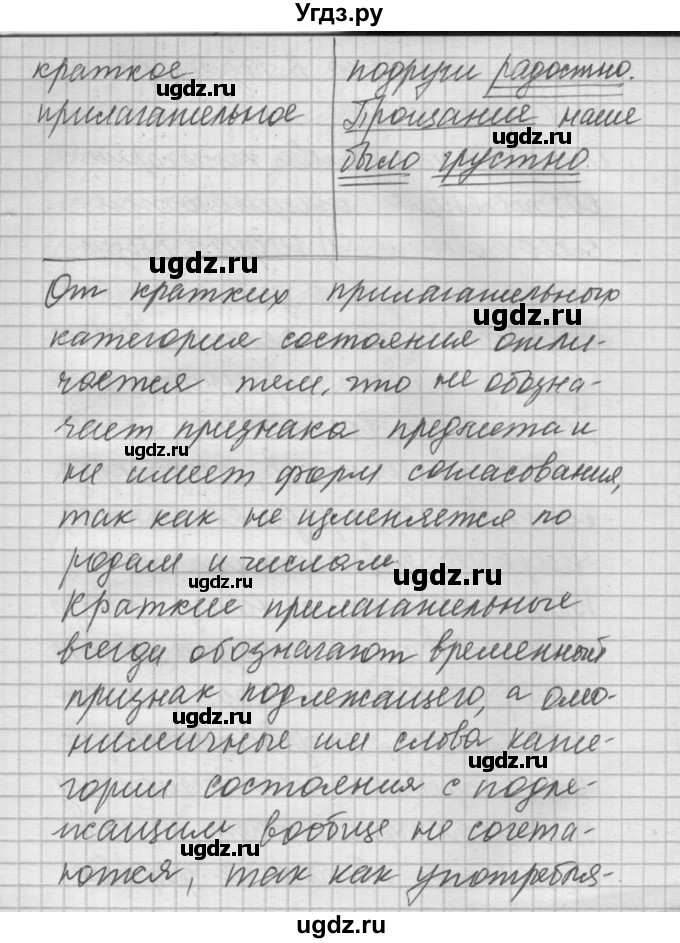 Угдз.ру
краткое
прилагательное
подруги радостно.
Прощание наше
было грустно.
От кратких прилагательных
категория состояния отли-
чается тем, что не обозна-
чает признака предмета и
не имеет форм согласования,
так как не изменяется по
родам и числам.
Краткие прилагательные
всегда обозначают временный
признак подлежащего, а омо-
нимичные им слова кате-
гории состояния с подле-
жащим вообще не сочета-
ются, так как употребля-
ugdz.ru
ugdz.ru
ugdz.ru
ugdz.ru
ugdz.ru
ugdz.ru
ugdz.ru
ugdz.ru
ugdz.ru
ugdz.ru
ugdz.ru
ugdz.ru
ugdz.ru